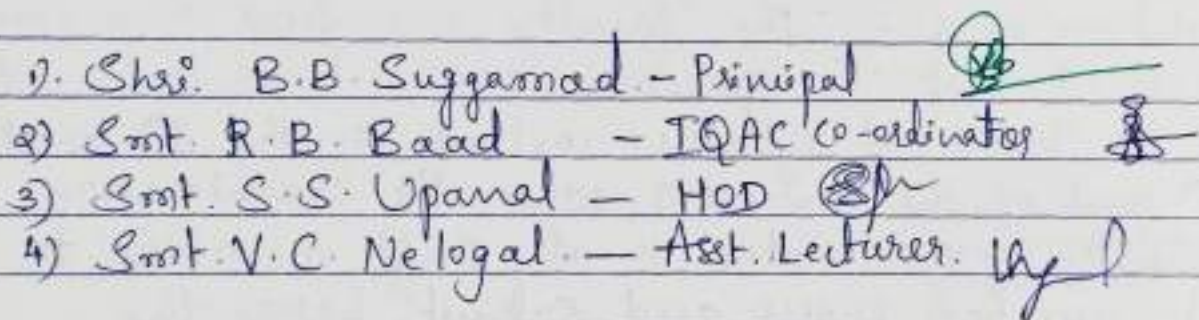 1). Shri. B.B Suggamad - Principal
2) Smt. R.B. Baad - IQAC Co-ordinator
3) Smt. S.S. Upanal - HOD
4) Smt. V.C. Nelogal. - Asst. Lecturer.